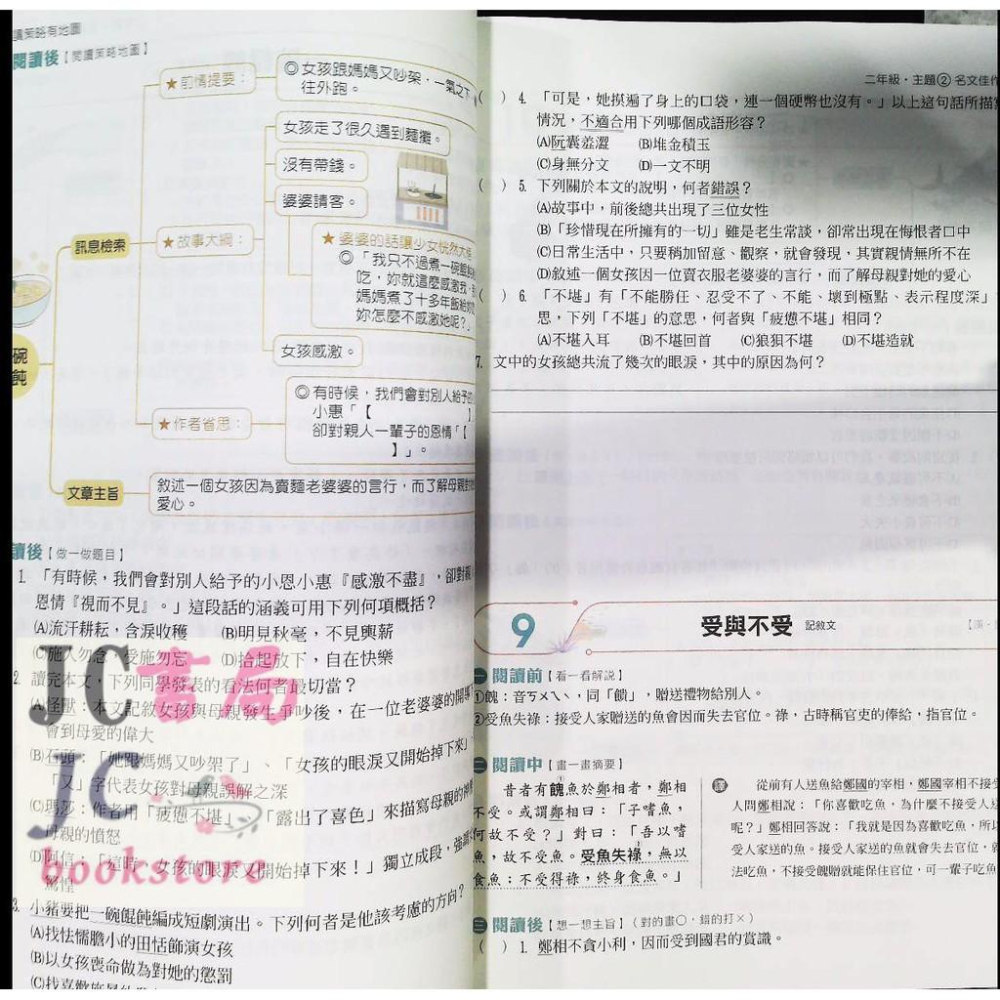 讀策略有地圖
閱讀後【閱讀策略地圖】
★前情提要：
◎女孩跟媽媽又吵架，一氣之下
往外跑。
女孩走了很久遇到麵攤。
沒有帶錢。
婆婆請客。
訊息檢索
★故事大綱：
★婆婆的話讓少女恍然大悟
◎「我只不過煮一碗餛飩
吃，妳就這麼感激我，
媽媽煮了十多年飯給
妳怎麼不感激她呢？」
女孩感激。
碗
飩
★作者省思：
◎有時候，我們會對別人給予的
小惠「【 】
卻對親人一輩子的恩情「【
】」。
文章主旨
敘述一個女孩因為賣麵老婆婆的言行，而了解母親對她的
愛心。
讀後【做一做題目】
1. 「有時候，我們會對別人給予的小恩小惠『感激不盡』，卻對親
恩情『視而不見』。」這段話的涵義可用下列何項概括？
(A)流汗耕耘，含淚收穫 (B)明見秋毫，不見輿薪
(C)施人勿念，受施勿忘 (D)拾起放下，自在快樂
2. 讀完本文，下列同學發表的看法何者最切當？
(A)怪獸：本文記敘女孩與母親發生爭吵後，在一位老婆婆的開導
會到母愛的偉大
(B)石頭：「她跟媽媽又吵架了」、「女孩的眼淚又開始掉下來」
「又」字代表女孩對母親誤解之深
(C)瑪莎：作者用「疲憊不堪」、「露出了喜色」來描寫母親的神情
母親的憤怒
(D)阿信：「這時，女孩的眼淚又開始掉下來！」獨立成段，強調
驚惶
3. 小豬要把一碗餛飩編成短劇演出。下列何者是他該考慮的方向？
(A)找怯懦膽小的田恬飾演女孩
(B)以女孩喪命做為對她的懲罰
JC書局
JC
bookstore
二年級・主題②名文佳作
( ) 4. 「可是，她摸遍了身上的口袋，連一個硬幣也沒有。」以上這句話所描寫
情況，不適合用下列哪個成語形容？
(A)阮囊羞澀 (B)堆金積玉
(C)身無分文 (D)一文不明
( ) 5. 下列關於本文的說明，何者錯誤？
(A)故事中，前後總共出現了三位女性
(B)「珍惜現在所擁有的一切」雖是老生常談，卻常出現在悔恨者口中
(C)日常生活中，只要稍加留意、觀察，就會發現，其實親情無所不在
(D)敘述一個女孩因一位賣衣服老婆婆的言行，而了解母親對她的愛心
( ) 6. 「不堪」有「不能勝任、忍受不了、不能、壞到極點、表示程度深」
思，下列「不堪」的意思，何者與「疲憊不堪」相同？
(A)不堪入耳 (B)不堪回首 (C)狼狽不堪 (D)不堪造就
7. 文中的女孩總共流了幾次的眼淚，其中的原因為何？
9 受與不受 記敘文
一 閱讀前【看一看解說】
①餽：音ㄎㄨㄟˋ，同「饋」，贈送禮物給別人。
②受魚失祿：接受人家贈送的魚會因而失去官位。祿，古時稱官吏的俸給，指官位。
二 閱讀中【畫一畫摘要】
昔者有餽魚於鄭相者，鄭相
不受。或謂鄭相曰：「子嗜魚，
何故不受？」對曰：「吾以嗜
魚，故不受魚。受魚失祿，無以
食魚；不受得祿，終身食魚。」
譯 從前有人送魚給鄭國的宰相，鄭國宰相不接受
人問鄭相說：「你喜歡吃魚，為什麼不接受人送
呢？」鄭相回答說：「我就是因為喜歡吃魚，所以
受人家送的魚。接受人家送的魚就會失去官位，
法吃魚，不接受餽贈就能保住官位，可一輩子吃魚
三 閱讀後【想一想主旨】（對的畫○，錯的打×）
( ) 1. 鄭相不貪小利，因而受到國君的賞識。